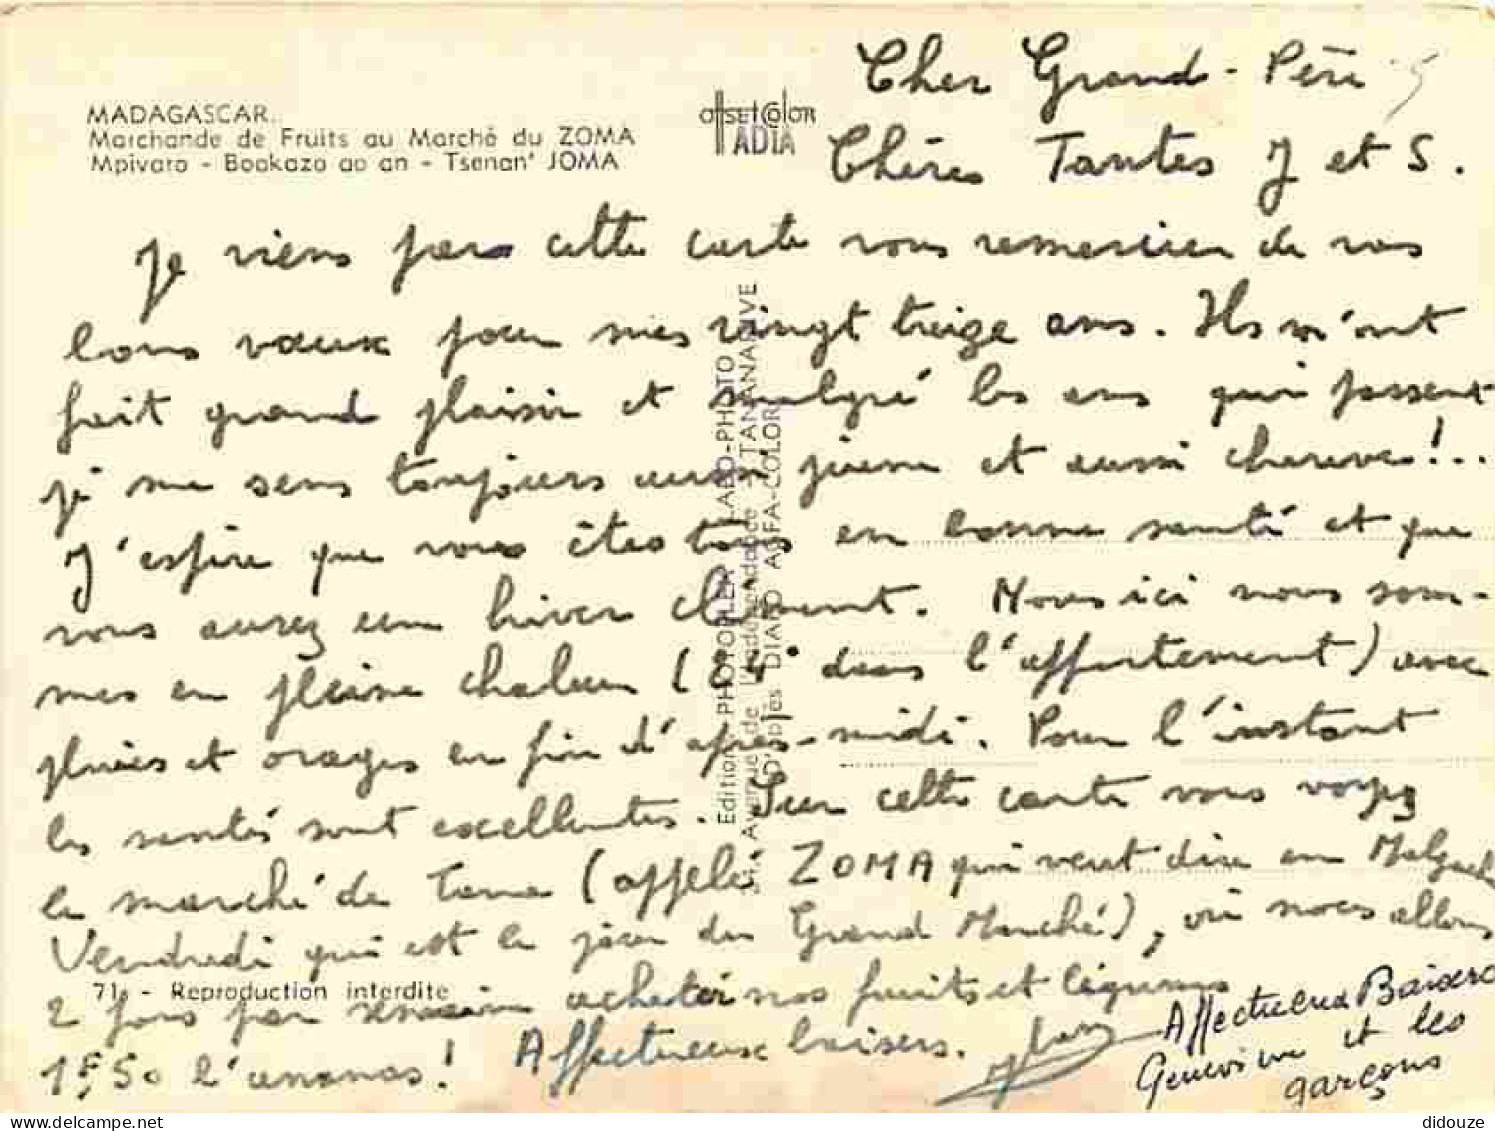 MADAGASCAR
Marchande de Fruits au Marché du ZOMA
Mpivaro - Boakazo ao an - Tsenan' JOMA
OFFSET COLOR
ADIA
Cher Grand-Père
Chères Tantes J et S.
Je viens par cette carte vous remercier de vos
bons vœux pour mes vingt treize ans. Ils m'ont
fait grand plaisir et malgré les ans qui passent
je me sens toujours aussi jeune et aussi
J'espère que vous êtes tous en bonne santé et que
vous aurez un hiver clément. Nous ici nous som-
mes en pleine chaleur ( dans l'appartement) avec
pluies et orages en fin d'après-midi. Pour l'instant
les santés sont excellentes. Sur cette carte vous voyez
le marché de Tana (appelé ZOMA qui veut dire en
Vendredi qui est le jour du Grand Marché), où nous allons
2 fois par semaine acheter nos fruits et légumes
1F,50 l'ananas! Affectueux baisers.
Affectueux Baisers
Geneviève et les
garçons
Edition PHOTO LABO-PHOTO
Avenue de l'Indépendance TANANARIVE
D'après DIAPO AGFA-COLOR
71 - Reproduction interdite
didouze